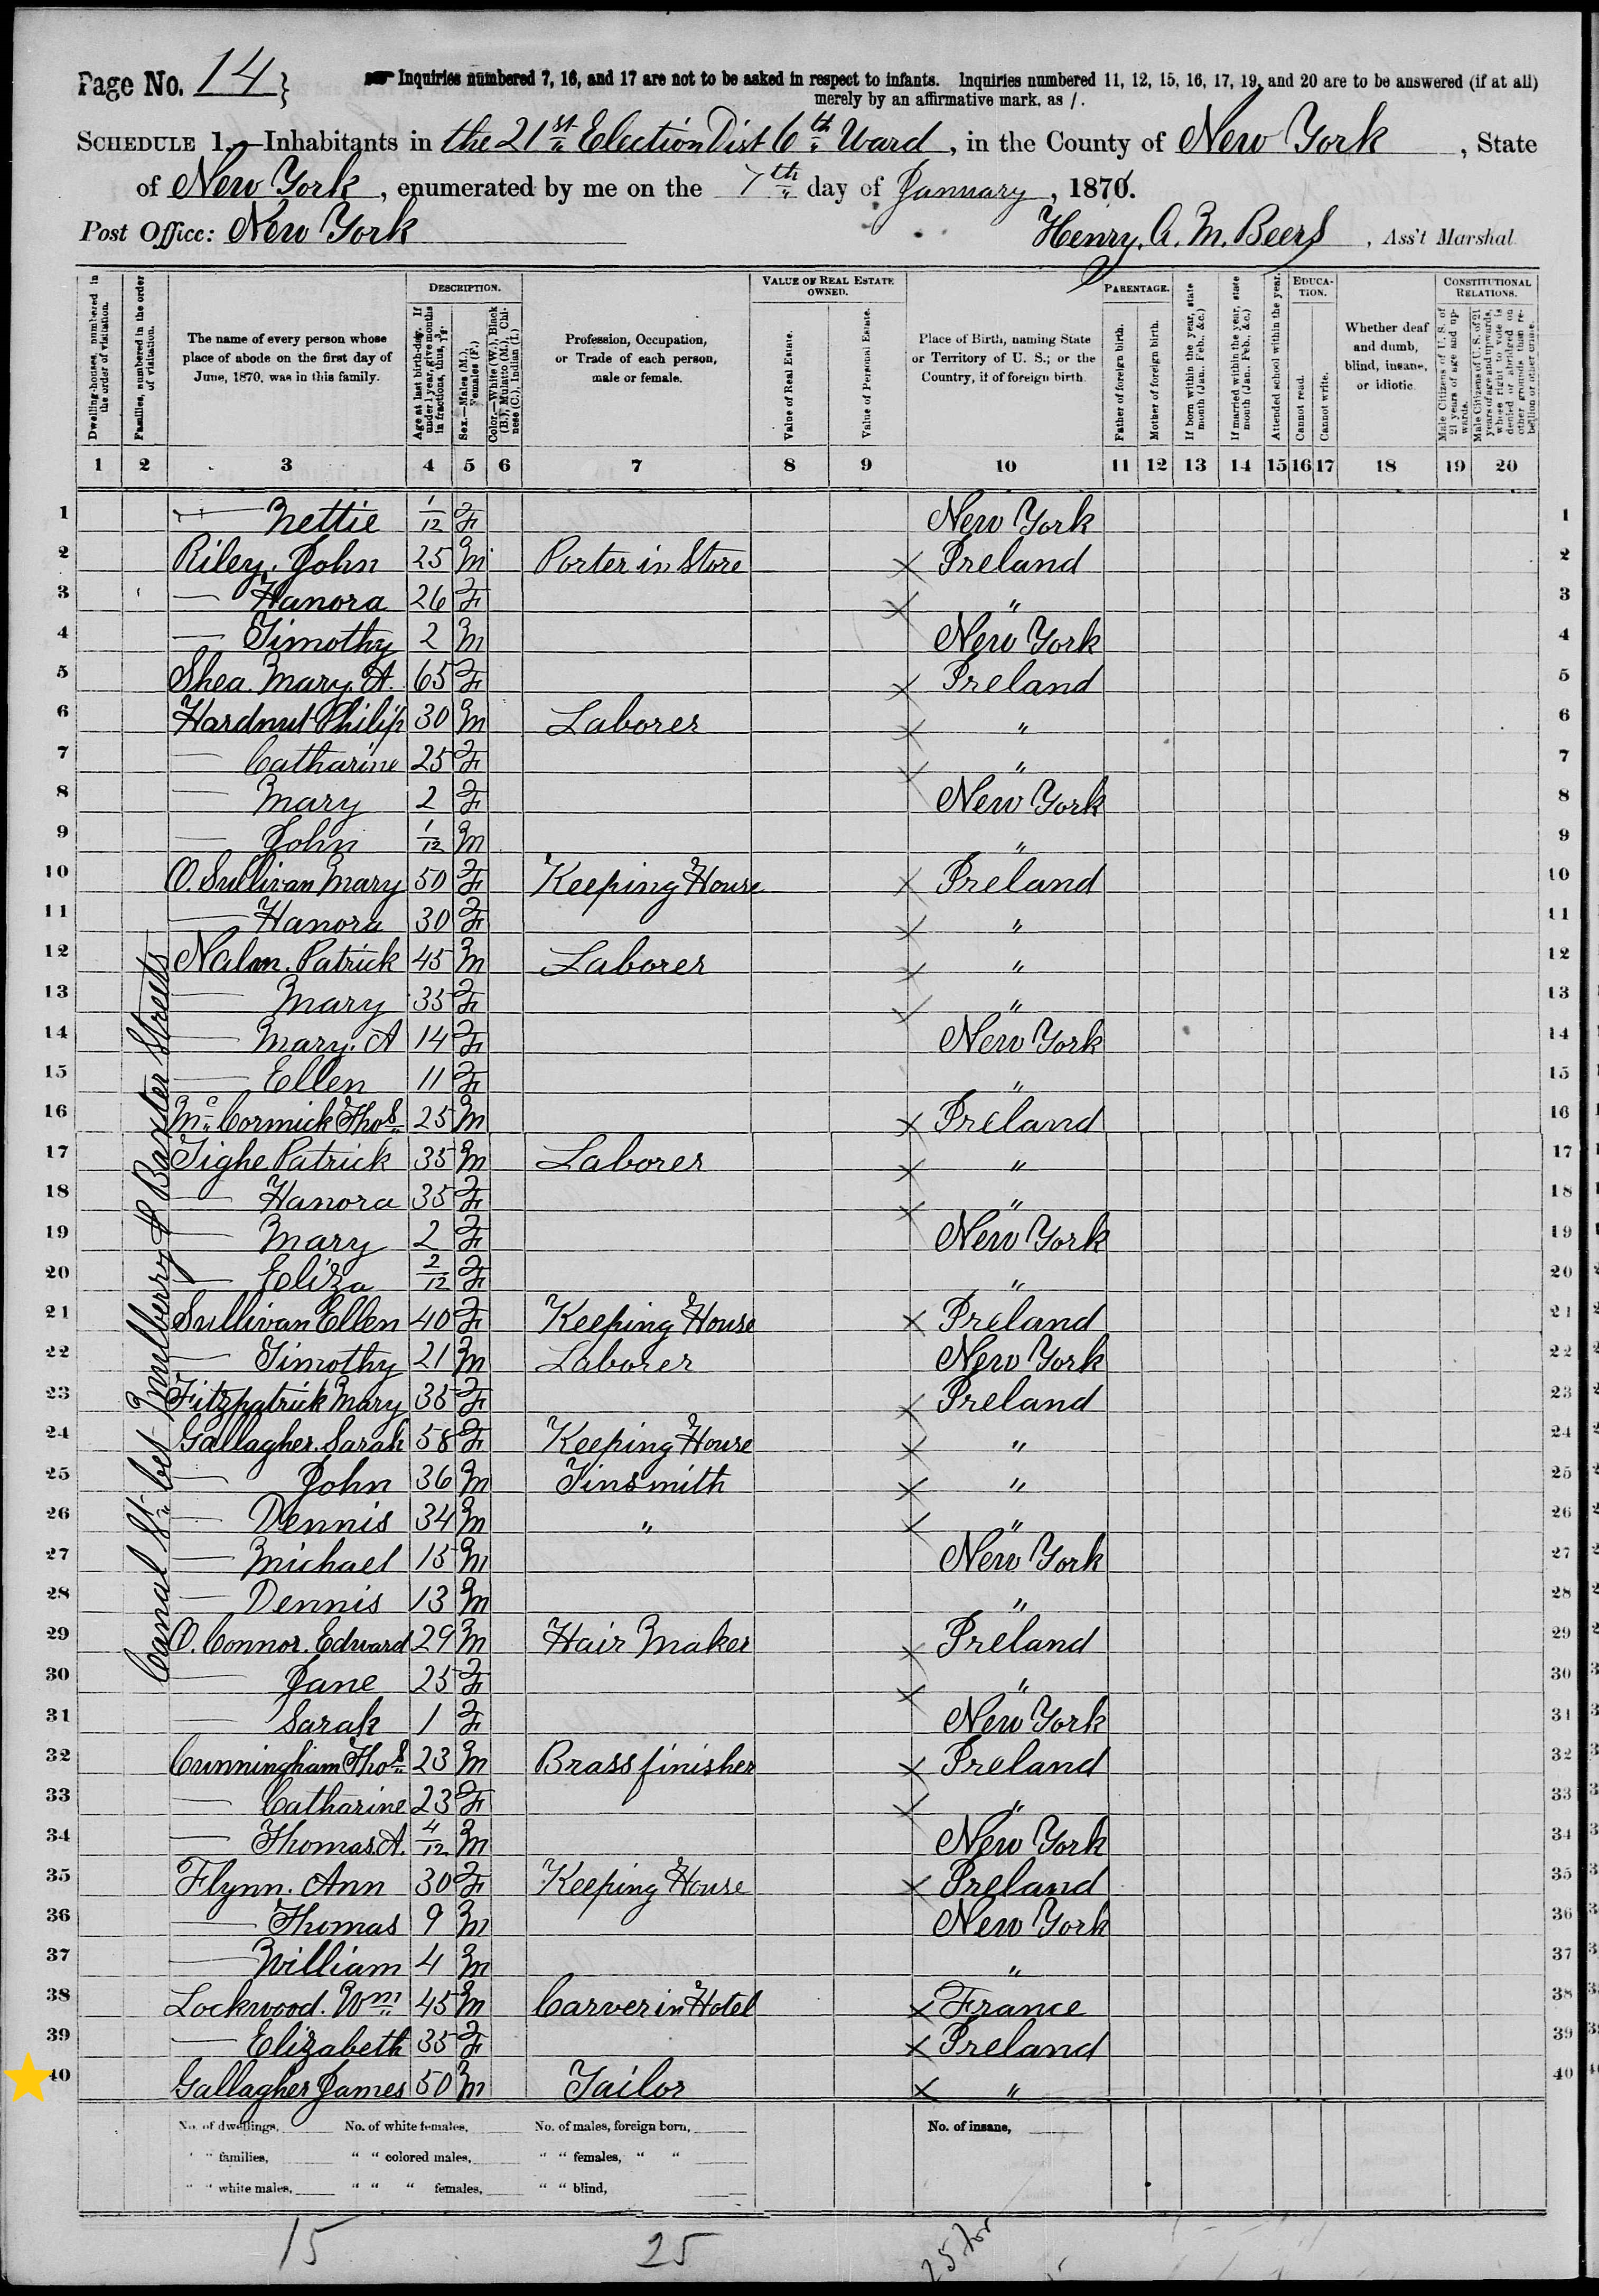 Page No. 14 } Inquiries numbered 7, 16, and 17 are not to be asked in respect to infants. Inquiries numbered 11, 12, 15, 16, 17, 19, and 20 are to be answered (if at all)
merely by an affirmative mark, as /.
SCHEDULE 1.—Inhabitants in the 21st Election Dist 6th Ward, in the County of New York, State
of New York, enumerated by me on the 7th day of January, 1870.
Post Office: New York Henry. A. M. Beers, Ass't Marshal.
Dwelling-houses, numbered in the order of visitation.
Families, numbered in the order of visitation.
The name of every person whose place of abode on the first day of June, 1870, was in this family.
DESCRIPTION.
Age at last birth-day. If under 1 year, give months in fractions, thus, 3/12.
Sex.—Males (M.), Females (F.)
Color.—White (W.), Black (B.), Mulatto (M.), Chinese (C.), Indian (I.)
Profession, Occupation, or Trade of each person, male or female.
VALUE OF REAL ESTATE OWNED.
Value of Real Estate.
Value of Personal Estate.
Place of Birth, naming State or Territory of U. S.; or the Country, if of foreign birth.
PARENTAGE.
Father of foreign birth.
Mother of foreign birth.
If born within the year, state month (Jan., Feb., &c.)
If married within the year, state month (Jan., Feb., &c.)
Attended school within the year.
EDUCATION.
Cannot read.
Cannot write.
Whether deaf and dumb, blind, insane, or idiotic.
CONSTITUTIONAL RELATIONS.
Male Citizens of U. S. of 21 years of age and upwards.
Male Citizens of U. S. of 21 years of age and upwards, whose right to vote is denied or abridged on other grounds than rebellion or other crime.
1 2 3 4 5 6 7 8 9 10 11 12 13 14 15 16 17 18 19 20
1 — Nettie 1/12 F New York 1
2 Riley. John 25 M Porter in Store X Ireland 2
3 — Hanora 26 F X " 3
4 — Timothy 2 M New York 4
5 Shea. Mary. A. 65 F X Ireland 5
6 Hardnut Philip 30 M Laborer X " 6
7 — Catharine 25 F X " 7
8 — Mary 2 F New York 8
9 — John 1/12 M " 9
10 O. Sullivan Mary 50 F Keeping House X Ireland 10
11 — Hanora 30 F X " 11
12 Nalon. Patrick 45 M Laborer X " 12
13 — Mary 35 F X " 13
14 — Mary. A 14 F New York 14
15 — Ellen 11 F " 15
16 Mc Cormick Thos 25 M X Ireland 16
17 Tighe Patrick 35 M Laborer X " 17
18 — Hanora 35 F X " 18
19 — Mary 2 F New York 19
20 — Eliza 2/12 F " 20
21 Sullivan Ellen 40 F Keeping House X Ireland 21
22 — Timothy 21 M Laborer New York 22
23 Fitzpatrick Mary 35 F X Ireland 23
24 Gallagher. Sarah 58 F Keeping House X " 24
25 — John 36 M Tinsmith X " 25
26 — Dennis 34 M " X " 26
27 — Michael 15 M New York 27
28 — Dennis 13 M " 28
29 O. Connor. Edward 29 M Hair Maker X Ireland 29
30 — Jane 25 F X " 30
31 — Sarah 1 F New York 31
32 Cunningham Thos 23 M Brass finisher X Ireland 32
33 — Catharine 23 F X " 33
34 — Thomas. A. 4/12 M New York 34
35 Flynn. Ann 30 F Keeping House X Ireland 35
36 — Thomas 9 M New York 36
37 — William 4 M " 37
38 Lockwood. Wm 45 M Carver in Hotel X France 38
39 — Elizabeth 35 F X Ireland 39
40 Gallagher James 50 M Tailor X " 40
Canal St. bet Mulberry & Baxter Streets
No. of dwellings, No. of white females, No. of males, foreign born, No. of insane,
" " families, " " colored males, " " females, " "
" " white males, " " " females, " " blind,
15 25 25 for